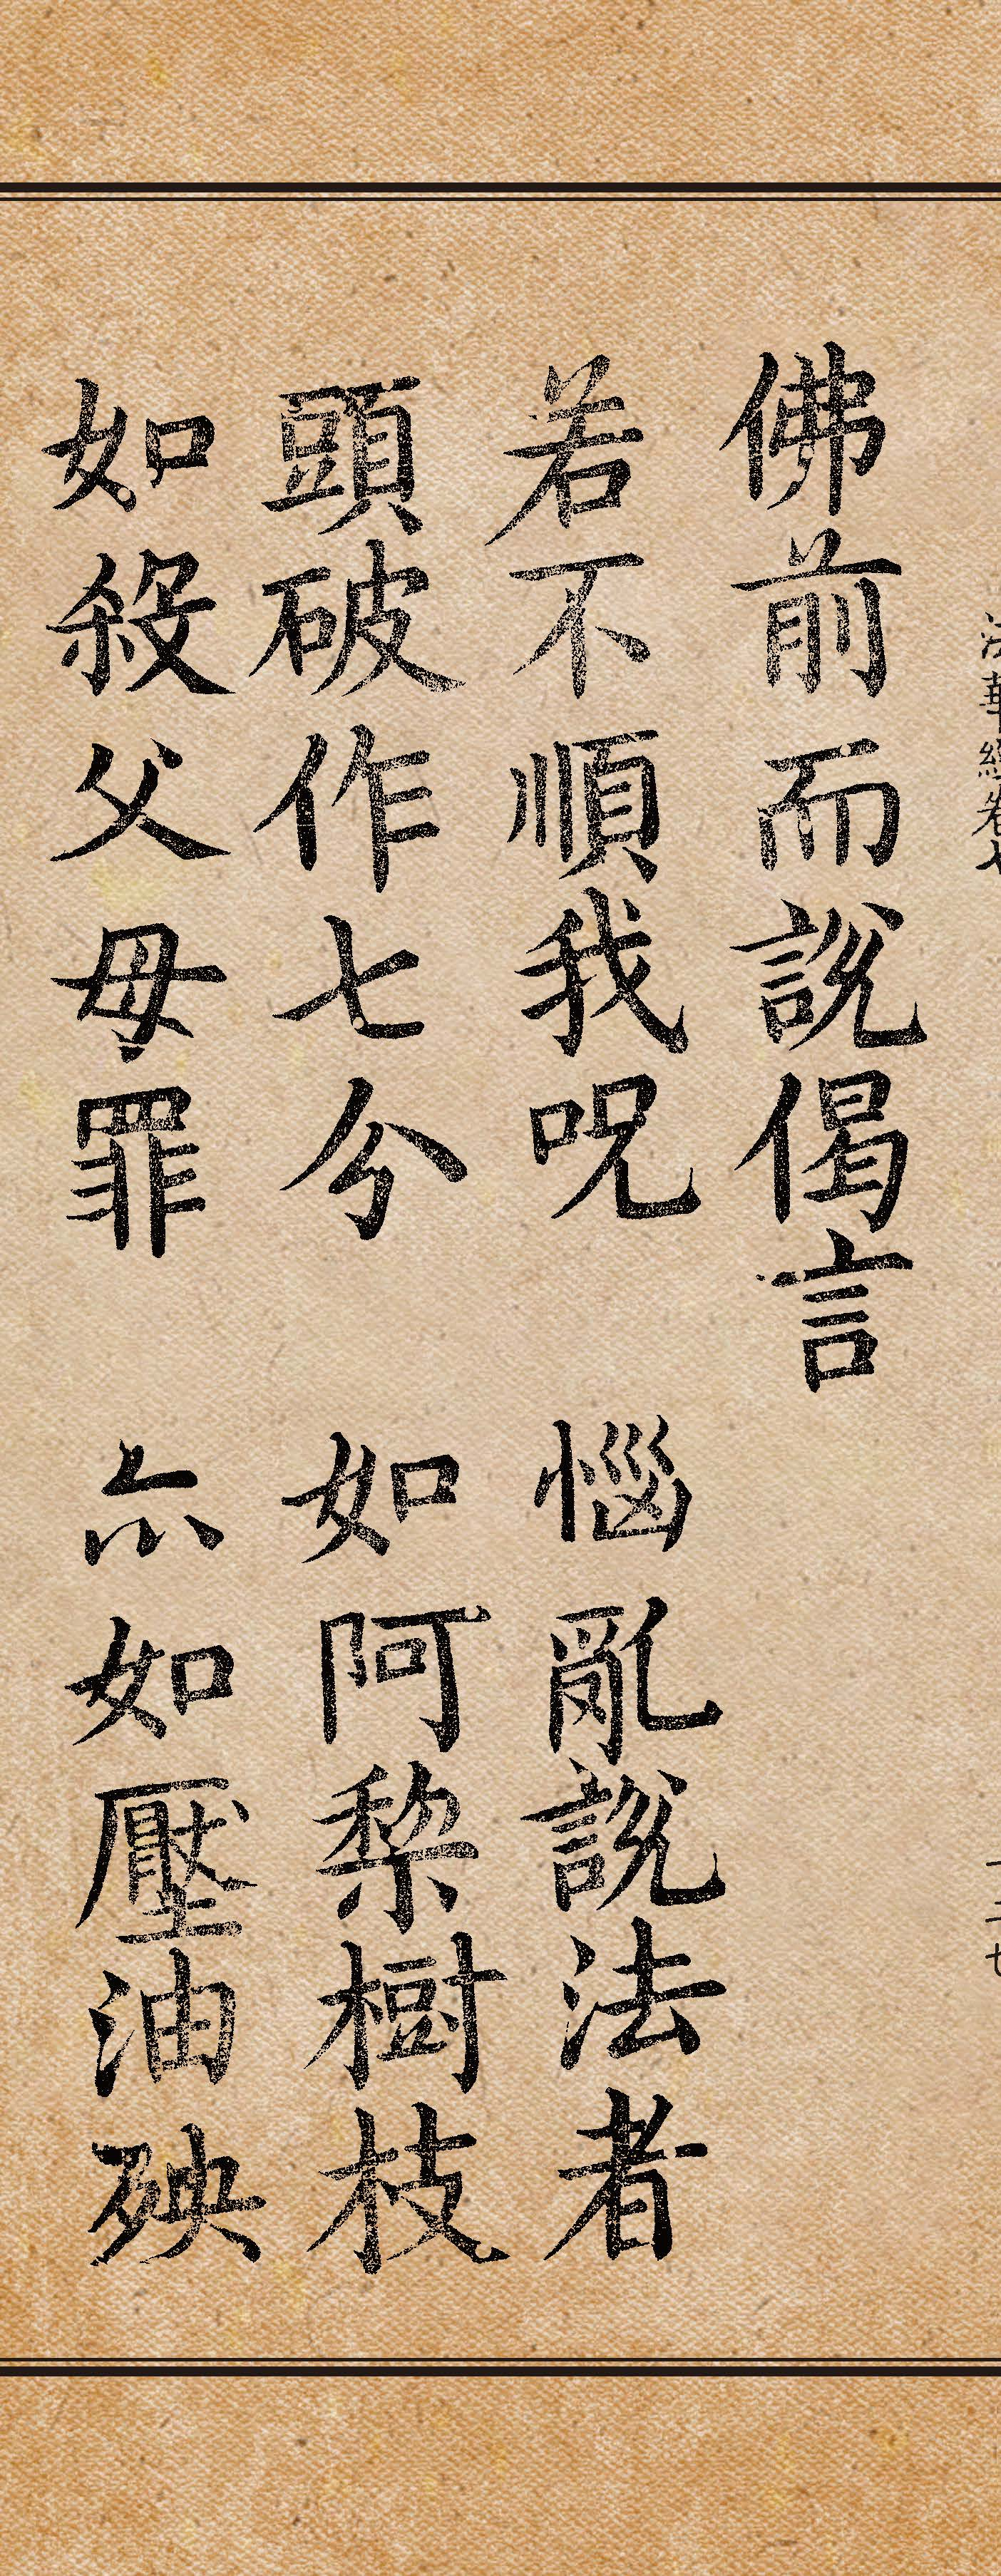 佛前而說偈言
若不順我呪　惱亂說法者
頭破作七分　如阿梨樹枝
如殺父母罪　亦如壓油殃